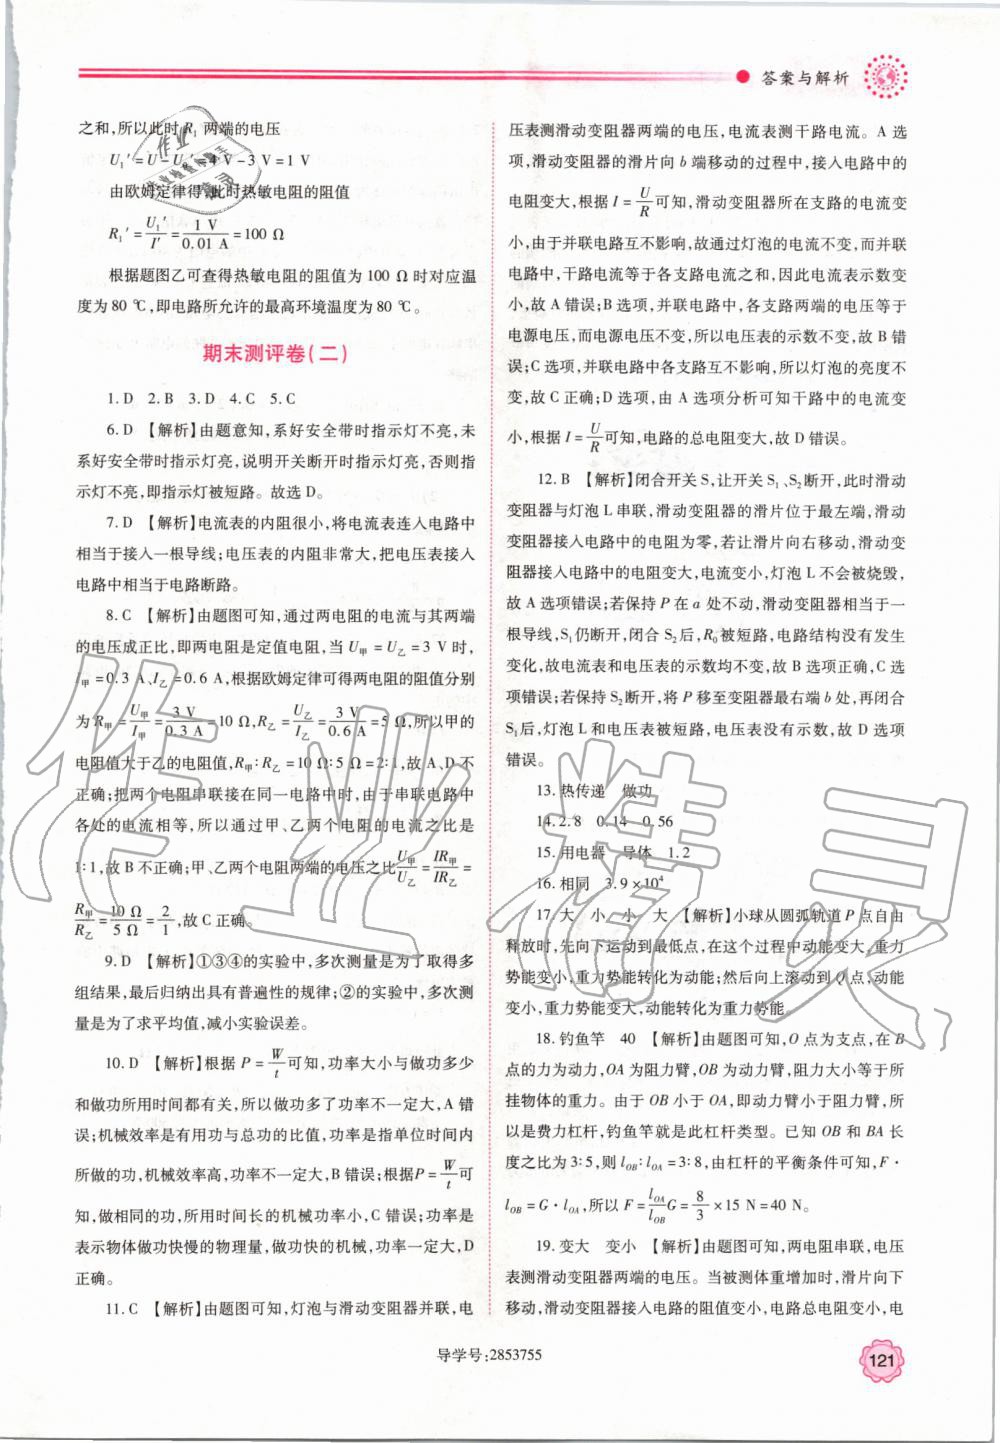 答案与解析
之和,所以此时 R₁ 两端的电压
U₁′=U-U₀′=4 V-3 V=1 V
由欧姆定律得,此时热敏电阻的阻值
R₁′=U₁′/I′=1 V/0.01 A=100 Ω
根据题图乙可查得热敏电阻的阻值为 100 Ω 时对应温
度为 80 ℃,即电路所允许的最高环境温度为 80 ℃。
期末测评卷(二)
1. D 2. B 3. D 4. C 5. C
6. D 【解析】由题意知,系好安全带时指示灯不亮,未
系好安全带时指示灯亮,说明开关断开时指示灯亮,否则指
示灯不亮,即指示灯被短路。故选 D。
7. D 【解析】电流表的内阻很小,将电流表连入电路中
相当于接入一根导线;电压表的内阻非常大,把电压表接入
电路中相当于电路断路。
8. C 【解析】由题图可知,通过两电阻的电流与其两端
的电压成正比,即两电阻是定值电阻,当 U甲=U乙=3 V 时,
I甲=0.3 A、I乙=0.6 A,根据欧姆定律可得两电阻的阻值分别
为 R甲=U甲/I甲=3 V/0.3 A=10 Ω,R乙=U乙/I乙=3 V/0.6 A=5 Ω,所以甲的
电阻值大于乙的电阻值,R甲∶R乙=10 Ω∶5 Ω=2∶1,故 A、D 不
正确;把两个电阻串联接在同一电路中时,由于串联电路中
各处的电流相等,所以通过甲、乙两个电阻的电流之比是
1∶1,故 B 不正确;甲、乙两个电阻两端的电压之比U甲/U乙=IR甲/IR乙=
R甲/R乙=10 Ω/5 Ω=2/1,故 C 正确。
9. D 【解析】①③④的实验中,多次测量是为了取得多
组结果,最后归纳出具有普遍性的规律;②的实验中,多次测
量是为了求平均值,减小实验误差。
10. D 【解析】根据 P=W/t可知,功率大小与做功多少
和做功所用时间都有关,所以做功多了功率不一定大,A 错
误;机械效率是有用功与总功的比值,功率是指单位时间内
所做的功,机械效率高,功率不一定大,B 错误;根据P=W/t可
知,做相同的功,所用时间长的机械功率小,C 错误;功率是
表示物体做功快慢的物理量,做功快的机械,功率一定大,D
正确。
11. C 【解析】由题图可知,灯泡与滑动变阻器并联,电
压表测滑动变阻器两端的电压,电流表测干路电流。A 选
项,滑动变阻器的滑片向 b 端移动的过程中,接入电路中的
电阻变大,根据 I=U/R可知,滑动变阻器所在支路的电流变
小,由于并联电路互不影响,故通过灯泡的电流不变,而并联
电路中,干路电流等于各支路电流之和,因此电流表示数变
小,故 A 错误;B 选项,并联电路中,各支路两端的电压等于
电源电压,而电源电压不变,所以电压表的示数不变,故 B 错
误;C 选项,并联电路中各支路互不影响,所以灯泡的亮度不
变,故 C 正确;D 选项,由 A 选项分析可知干路中的电流变
小,根据 I=U/R可知,电路的总电阻变大,故 D 错误。
12. B 【解析】闭合开关 S,让开关 S₁、S₂断开,此时滑动
变阻器与灯泡 L 串联,滑动变阻器的滑片位于最左端,滑动
变阻器接入电路中的电阻为零,若让滑片向右移动,滑动变
阻器接入电路中的电阻变大,电流变小,灯泡 L 不会被烧毁,
故 A 选项错误;若保持 P 在 a 处不动,滑动变阻器相当于一
根导线,S₁仍断开,闭合 S₂后,R₀被短路,电路结构没有发生
变化,故电流表和电压表的示数均不变,故 B 选项正确,C 选
项错误;若保持 S₂断开,将 P 移至变阻器最右端 b 处,再闭合
S₁后,灯泡 L 和电压表被短路,电压表没有示数,故 D 选项
错误。
13. 热传递 做功
14. 2.8 0.14 0.56
15. 用电器 导体 1.2
16. 相同 3.9×10⁴
17. 大 小 小 大 【解析】小球从圆弧轨道 P 点自由
释放时,先向下运动到最低点,在这个过程中动能变大,重力
势能变小,重力势能转化为动能;然后向上滚动到 Q 点,动能
变小,重力势能变大,动能转化为重力势能。
18. 钓鱼竿 40 【解析】由题图可知,O 点为支点,在 B
点的力为动力,OA 为阻力臂,OB 为动力臂,阻力大小等于所
挂物体的重力。由于 OB 小于 OA,即动力臂小于阻力臂,所
以是费力杠杆,钓鱼竿就是此杠杆类型。已知 OB 和 BA 长
度之比为 3∶5,则 l_OB∶l_OA=3∶8,由杠杆的平衡条件可知,F·
l_OB=G·l_OA,所以 F=l_OA/l_OB G=8/3×15 N=40 N。
19. 变大 变小 【解析】由题图可知,两电阻串联,电压
表测滑动变阻器两端的电压。当被测体重增加时,滑片向下
移动,滑动变阻器接入电路的阻值变小,电路总电阻变小,电
导学号:2853755
121
作业精灵